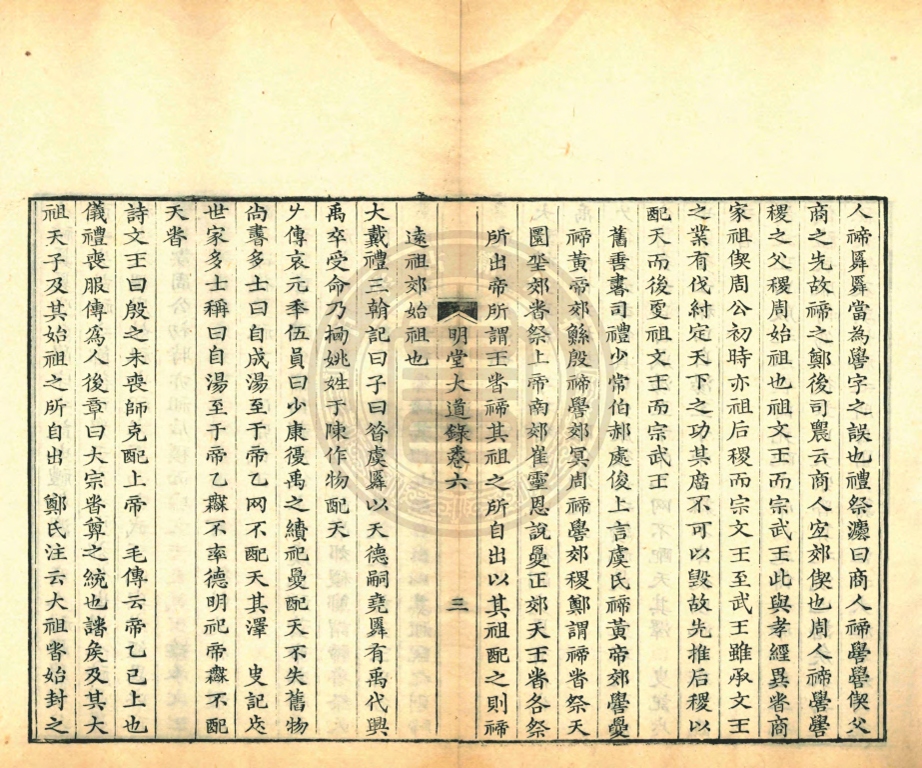 人禘䑞䑞當為嚳字之誤也禮祭灋曰商人禘嚳嚳偰父
商之先故禘之鄭後司農云商人宐郊偰也周人禘嚳嚳
稷之父稷周始祖也祖文王而宗武王此與孝經異者商
家祖偰周公初時亦祖后稷而宗文王至武王雖承文王
之業有伐紂定天下之功其廣不可以毀故先推后稷以
配天而後更祖文王而宗武王
舊唐書司禮少常伯郝處俊上言虞氏禘黃帝郊嚳夏
禘黃帝郊鯀殷禘嚳郊冥周禘嚳郊稷鄭謂禘者祭天
圜丠郊者祭上帝南郊崔靈恩說夏正郊天王者各祭
所出帝所謂王者禘其祖之所自出以其祖配之則禘
明堂大道錄卷六
三
遠祖郊始祖也
大戴禮三朝記曰子曰昔虞䑞以天德嗣堯䑞有禹代興
禹卒受命乃搹姚姓于陳作物配天
𠂇傳哀元年伍員曰少康復禹之績祀夏配天不失舊物
尙書多士曰自成湯至于帝乙网不配天其澤 史記𠫤
世家多士稱曰自湯至于帝乙橆不率德明祀帝橆不配
天者
詩文王曰殷之未喪師克配上帝 毛傳云帝乙已上也
儀禮喪服傳爲人後章曰大宗者尊之統也諸矦及其大
祖天子及其始祖之所自出 鄭氏注云大祖者始封之